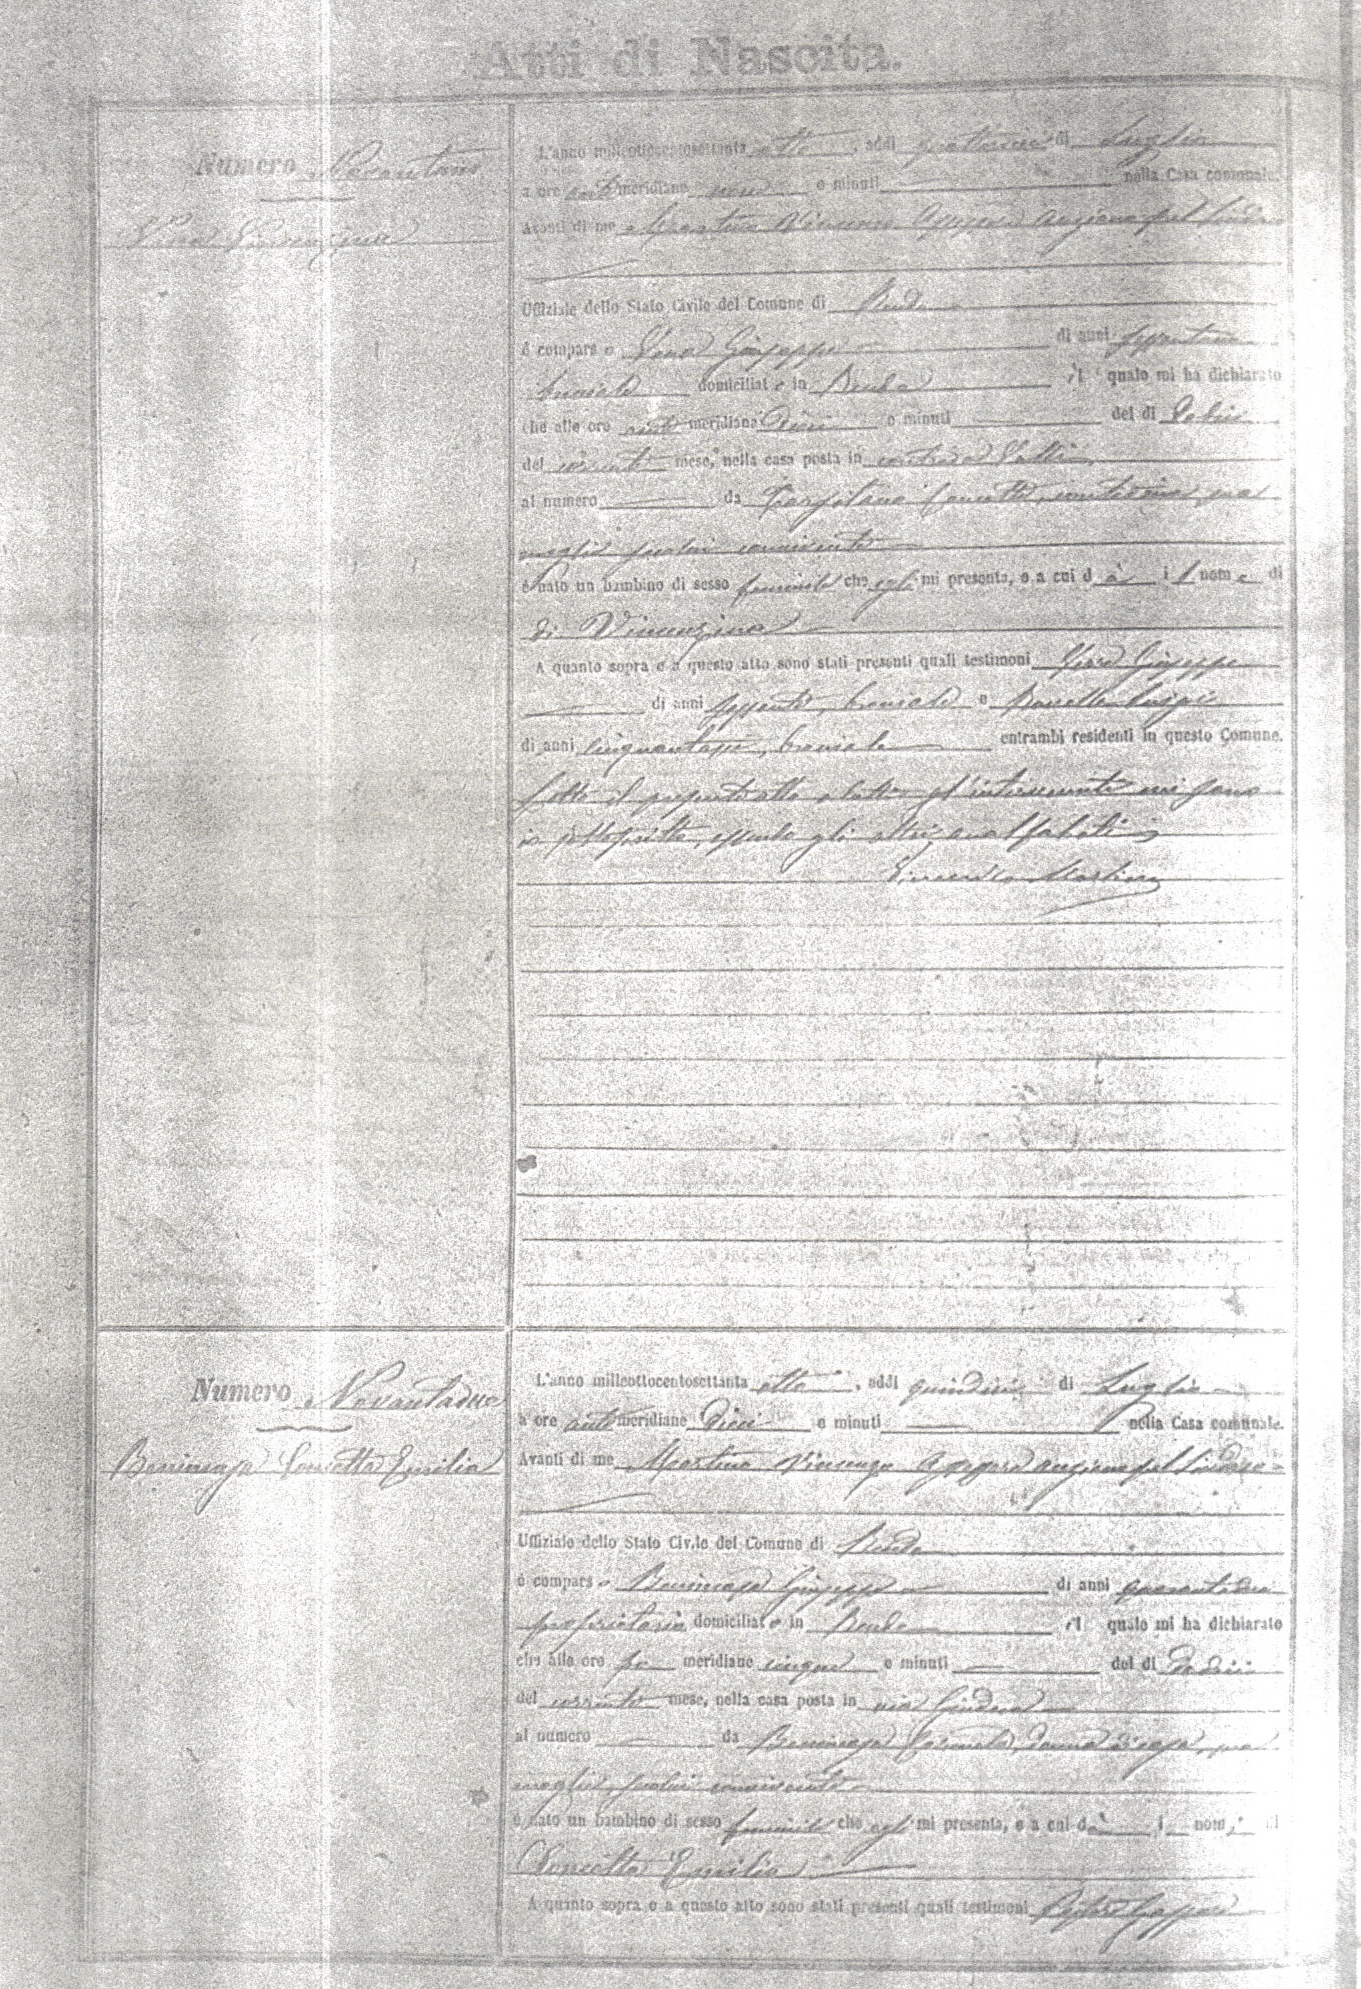 Atti di Nascita.
Numero Novantuno
Vincenzina
L'anno milleottocentosettanta otto, addì quattordici di Luglio
a ore anti meridiane nove e minuti nella Casa comunale.
Avanti di me Martino Vincenzo Assessore anziano pel Sindaco
Uffiziale dello Stato Civile del Comune di Rende
è comparso Giuseppe di anni
bracciale domiciliato in Rende il quale mi ha dichiarato
che alle ore anti meridiane dieci e minuti del dì dodici
del corrente mese, nella casa posta in contrada
al numero da Concetta, contadina, sua
moglie, seco lui convivente
è nato un bambino di sesso femminile che egli mi presenta, e a cui dà il nome di
di Vincenzina
A quanto sopra e a questo atto sono stati presenti quali testimoni Giuseppe
di anni sessanta, bracciale e Luigi
di anni cinquantasei, bracciale entrambi residenti in questo Comune.
Letto il presente atto a tutti gl'intervenuti mi sono
io sottoscritto, essendo gli altri analfabeti
Vincenzo Martino
Numero Novantadue
Benincasa Concetta Emilia
L'anno milleottocentosettanta otto, addì quindici di Luglio
a ore anti meridiane dieci e minuti nella Casa comunale.
Avanti di me Martino Vincenzo Assessore anziano pel Sindaco
Uffiziale dello Stato Civile del Comune di Rende
è comparso Benincasa Giuseppe di anni quarantadue
proprietario domiciliato in Rende il quale mi ha dichiarato
che alle ore po meridiane cinque e minuti del dì dodici
del corrente mese, nella casa posta in via Giudeca
al numero da Benincasa Carmela, donna di casa, sua
moglie, seco lui convivente
è nato un bambino di sesso femminile che egli mi presenta, e a cui dà i nomi di
Concetta Emilia
A quanto sopra e a questo atto sono stati presenti quali testimoni